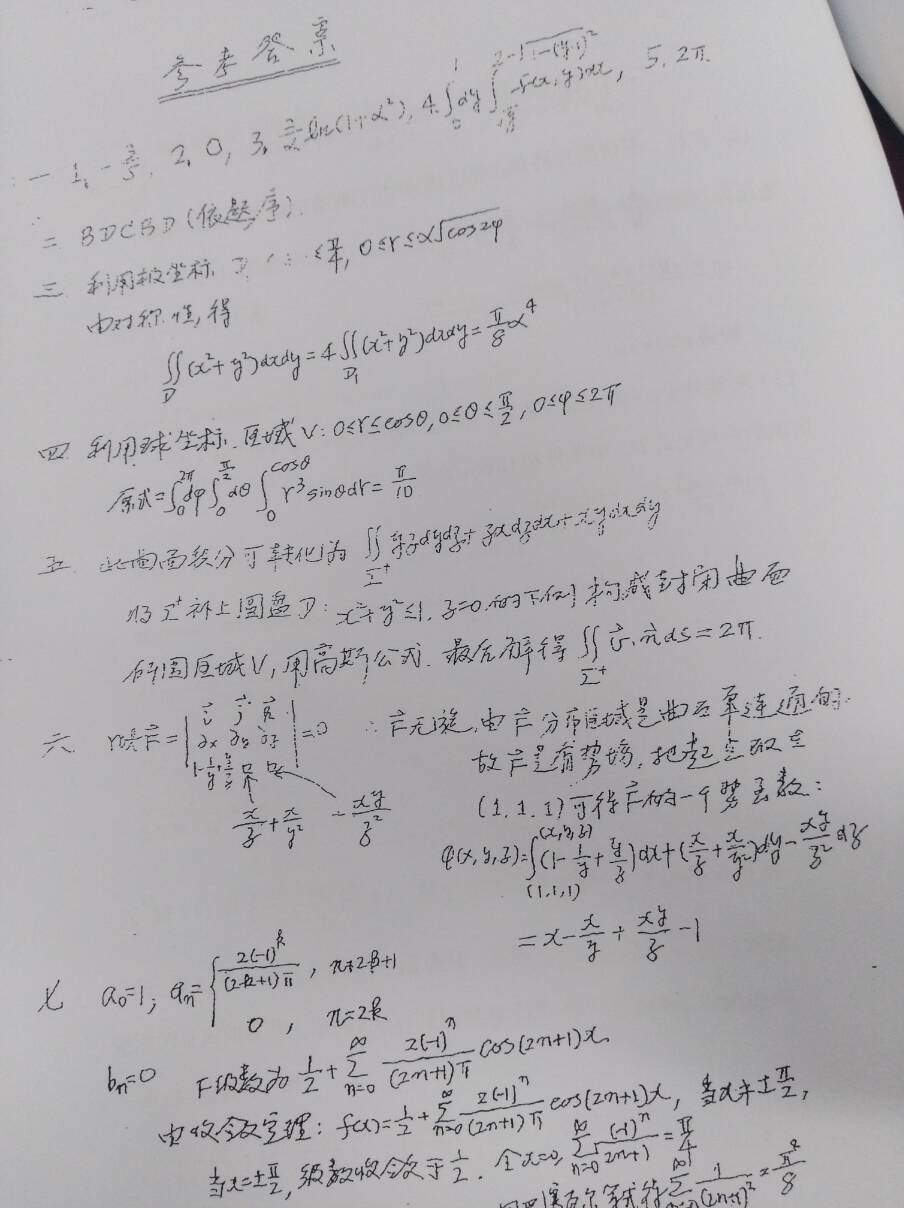 参考答案
一 1, -3/5, 2, 0, 3, ln(1+α²), 4. ∫₀¹dy∫^(2-√(1-(y-1)²)) f(x,y)dx, 5. 2π.
二 BDCBD (依题序).
三 利用极坐标 D ≤π/4, 0≤r≤α√cos2φ
由对称性, 得
∬_D (x²+y²)dxdy=4∬_D₁ (x²+y²)dxdy=π/8 α⁴
四 利用球坐标. 区域V: 0≤r≤cosθ, 0≤θ≤π/2, 0≤φ≤2π
原式=∫₀^2π dφ∫₀^π/2 dθ∫₀^cosθ r³sinθdr=π/10
五 此曲面积分可转化为 ∬_Σ⁺ yzdydz+zxdzdx+xydxdy
将Σ⁺补上圆盘D: x²+y²≤1, z=0.的下侧 构成封闭曲面
所围区域V, 用高斯公式. 最后解得 ∬_Σ⁺ v⃗·n⃗ds=2π.
六 rotF⃗=|i⃗ j⃗ k⃗; ∂x ∂y ∂z; 1-1/y+y/z □ □|=0 ∴F⃗无旋, 由F⃗分布区域是曲面单连通的.
故F⃗是有势场, 把起点取在
x/z+x/y² -xy/z² (1,1,1)可得F⃗的一个势函数:
φ(x,y,z)=∫_(1,1,1)^(x,y,z) (1-1/y+y/z)dx+(x/z+x/y²)dy-xy/z² dz
=x-x/y+xy/z-1
七 a₀=1; aₙ={2(-1)^k/((2k+1)π), n=2k+1
0, n=2k
bₙ=0 F级数为 1/2+∑_(n=0)^∞ 2(-1)ⁿ/((2n+1)π) cos(2n+1)x
由收敛定理: f(x)=1/2+∑_(n=0)^∞ 2(-1)ⁿ/((2n+1)π) cos(2n+1)x, 当x≠±π/2,
当x=±π/2, 级数收敛于1/2. 令x=0, ∑_(n=0)^∞ (-1)ⁿ/(2n+1)=π/4
等式得∑_(n=0)^∞ 1/(2n+1)²=π²/8